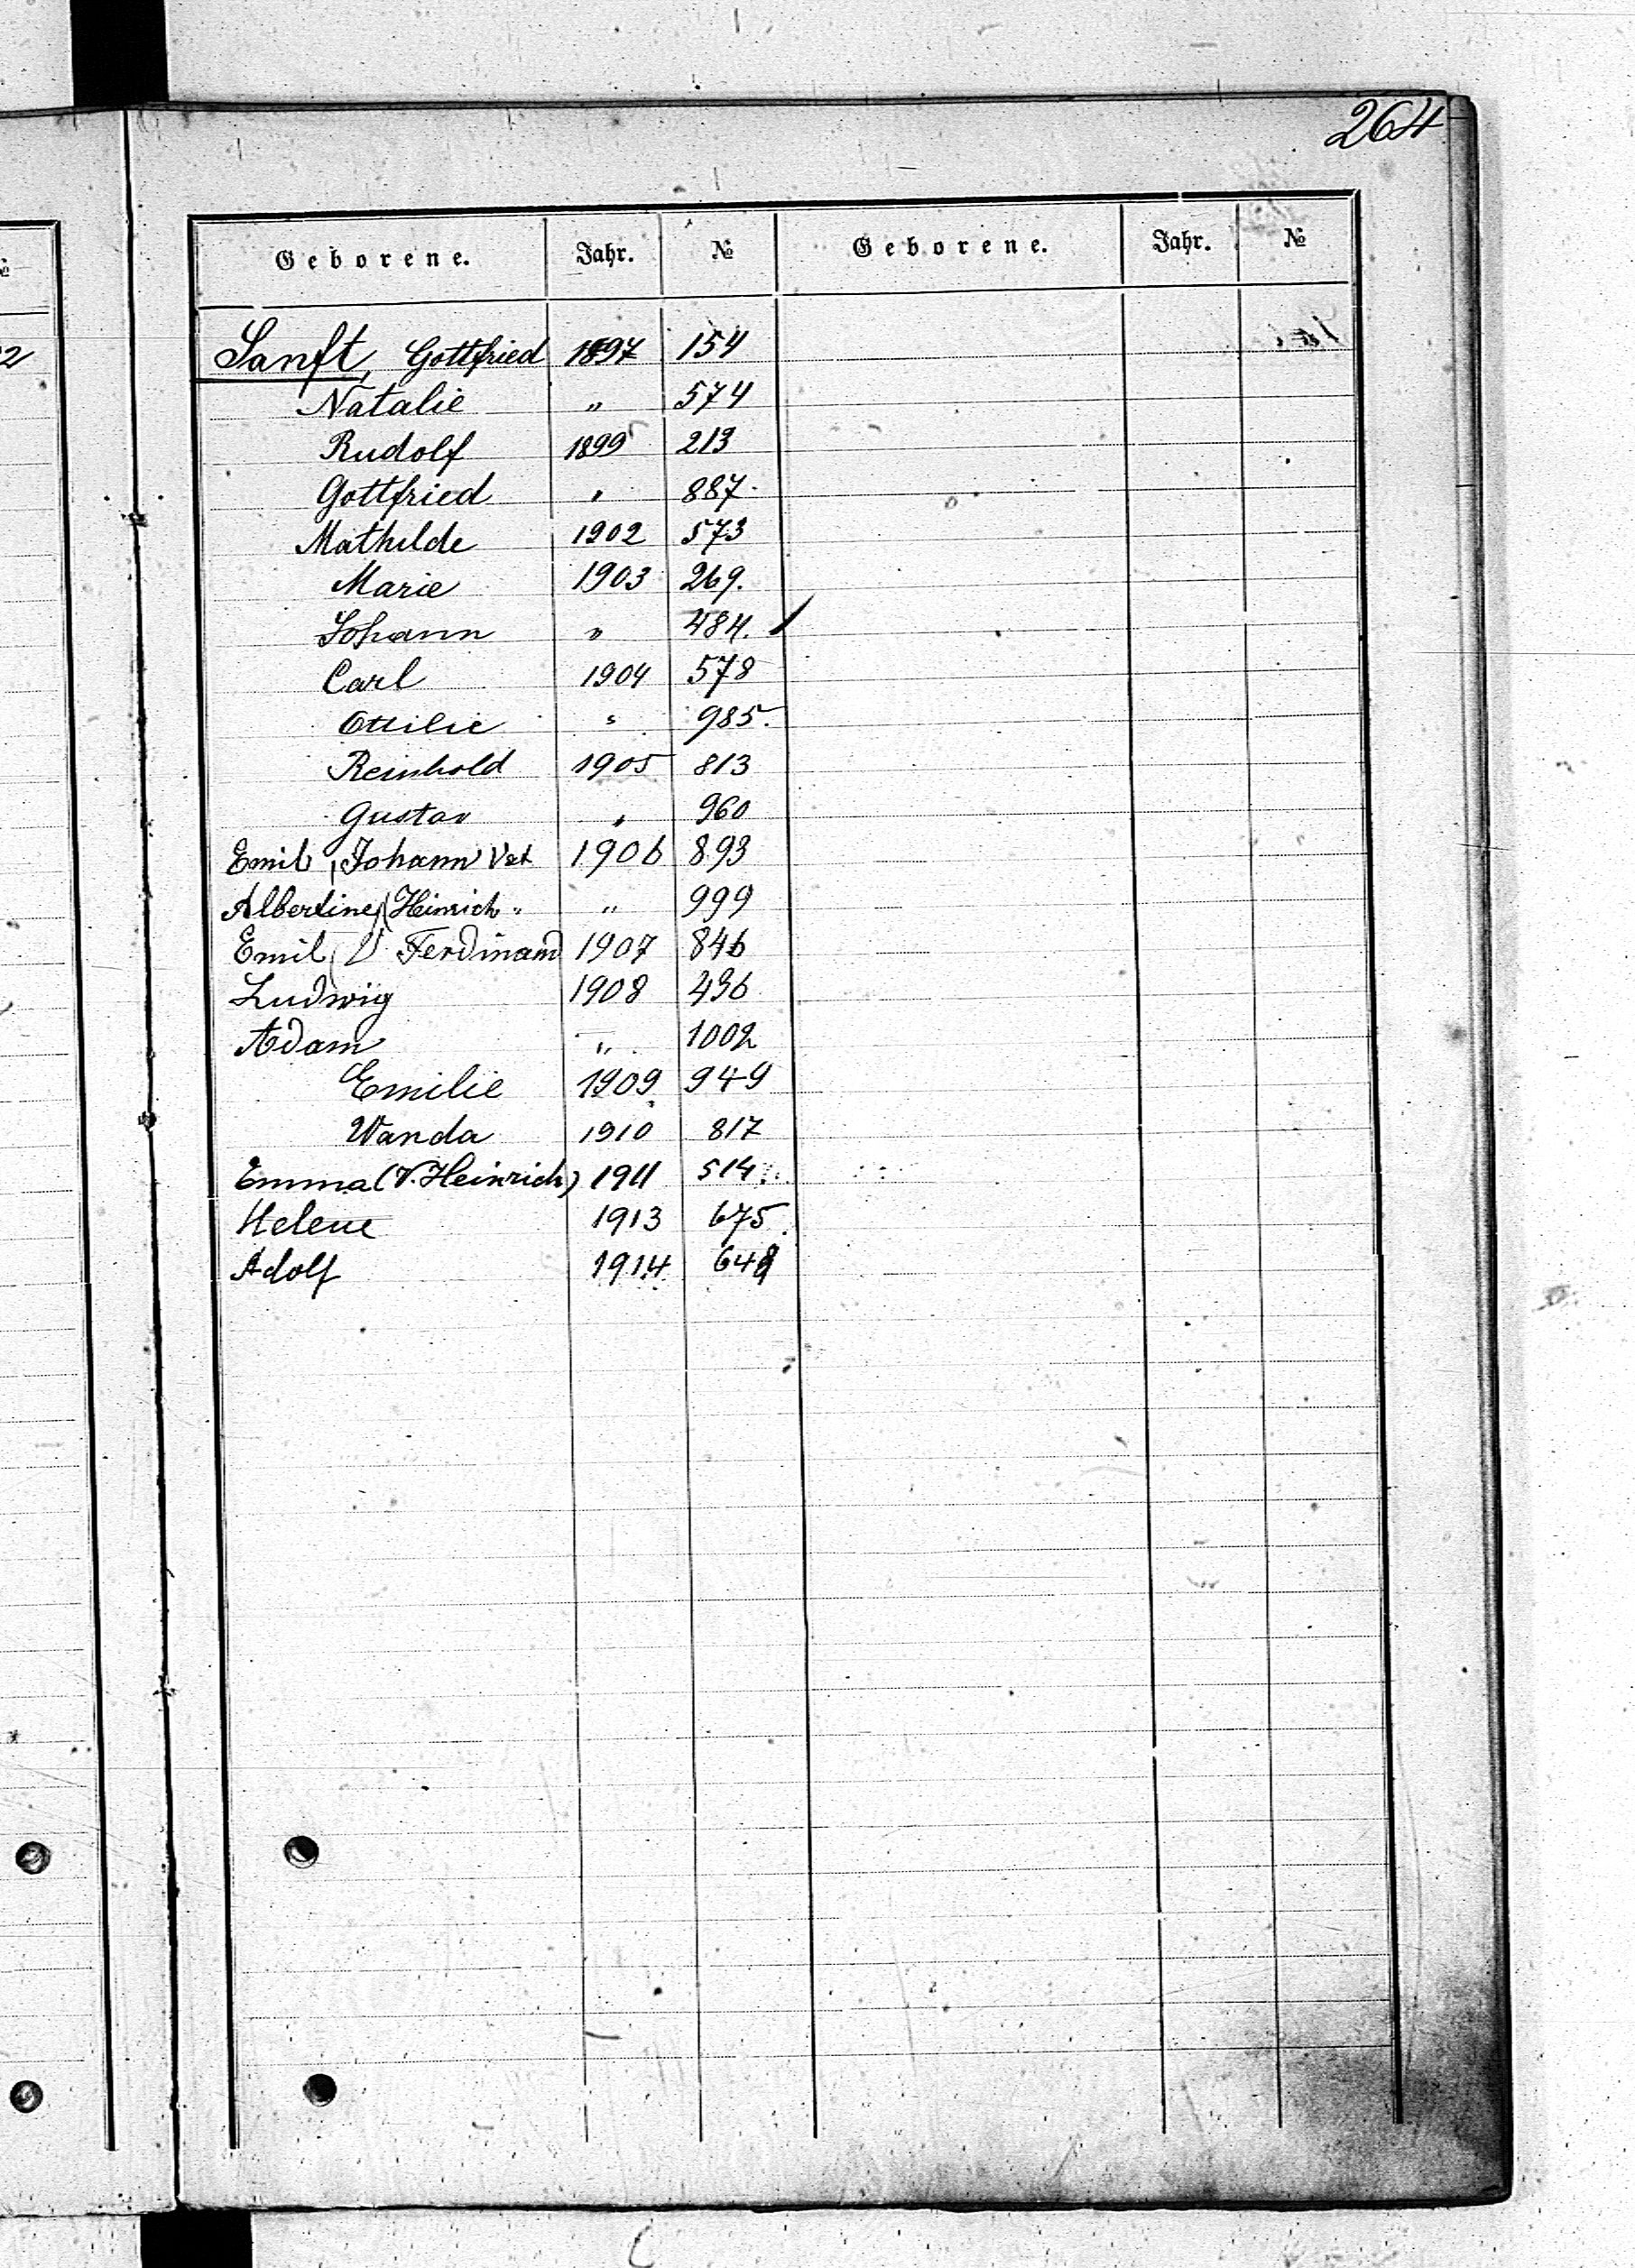 264
Geborene. Jahr. № Geborene. Jahr. №
Sanft, Gottfried 1897 154
Natalie " 574
Rudolf 1899 213
Gottfried " 887.
Mathilde 1902 573
Marie 1903 269.
Johann " 484.
Carl 1904 578
Ottilie " 985.
Reinhold 1905 813
Gustav " 960
Emil, Johann Vat 1906 893
Albertine, (Heinrich " " 999
Emil (V. Ferdinand 1907 846
Ludwig 1908 436
Adam " 1002
Emilie 1909 949
Wanda 1910 817
Emma (V. Heinrich) 1911 514
Helene 1913 675.
Adolf 1914